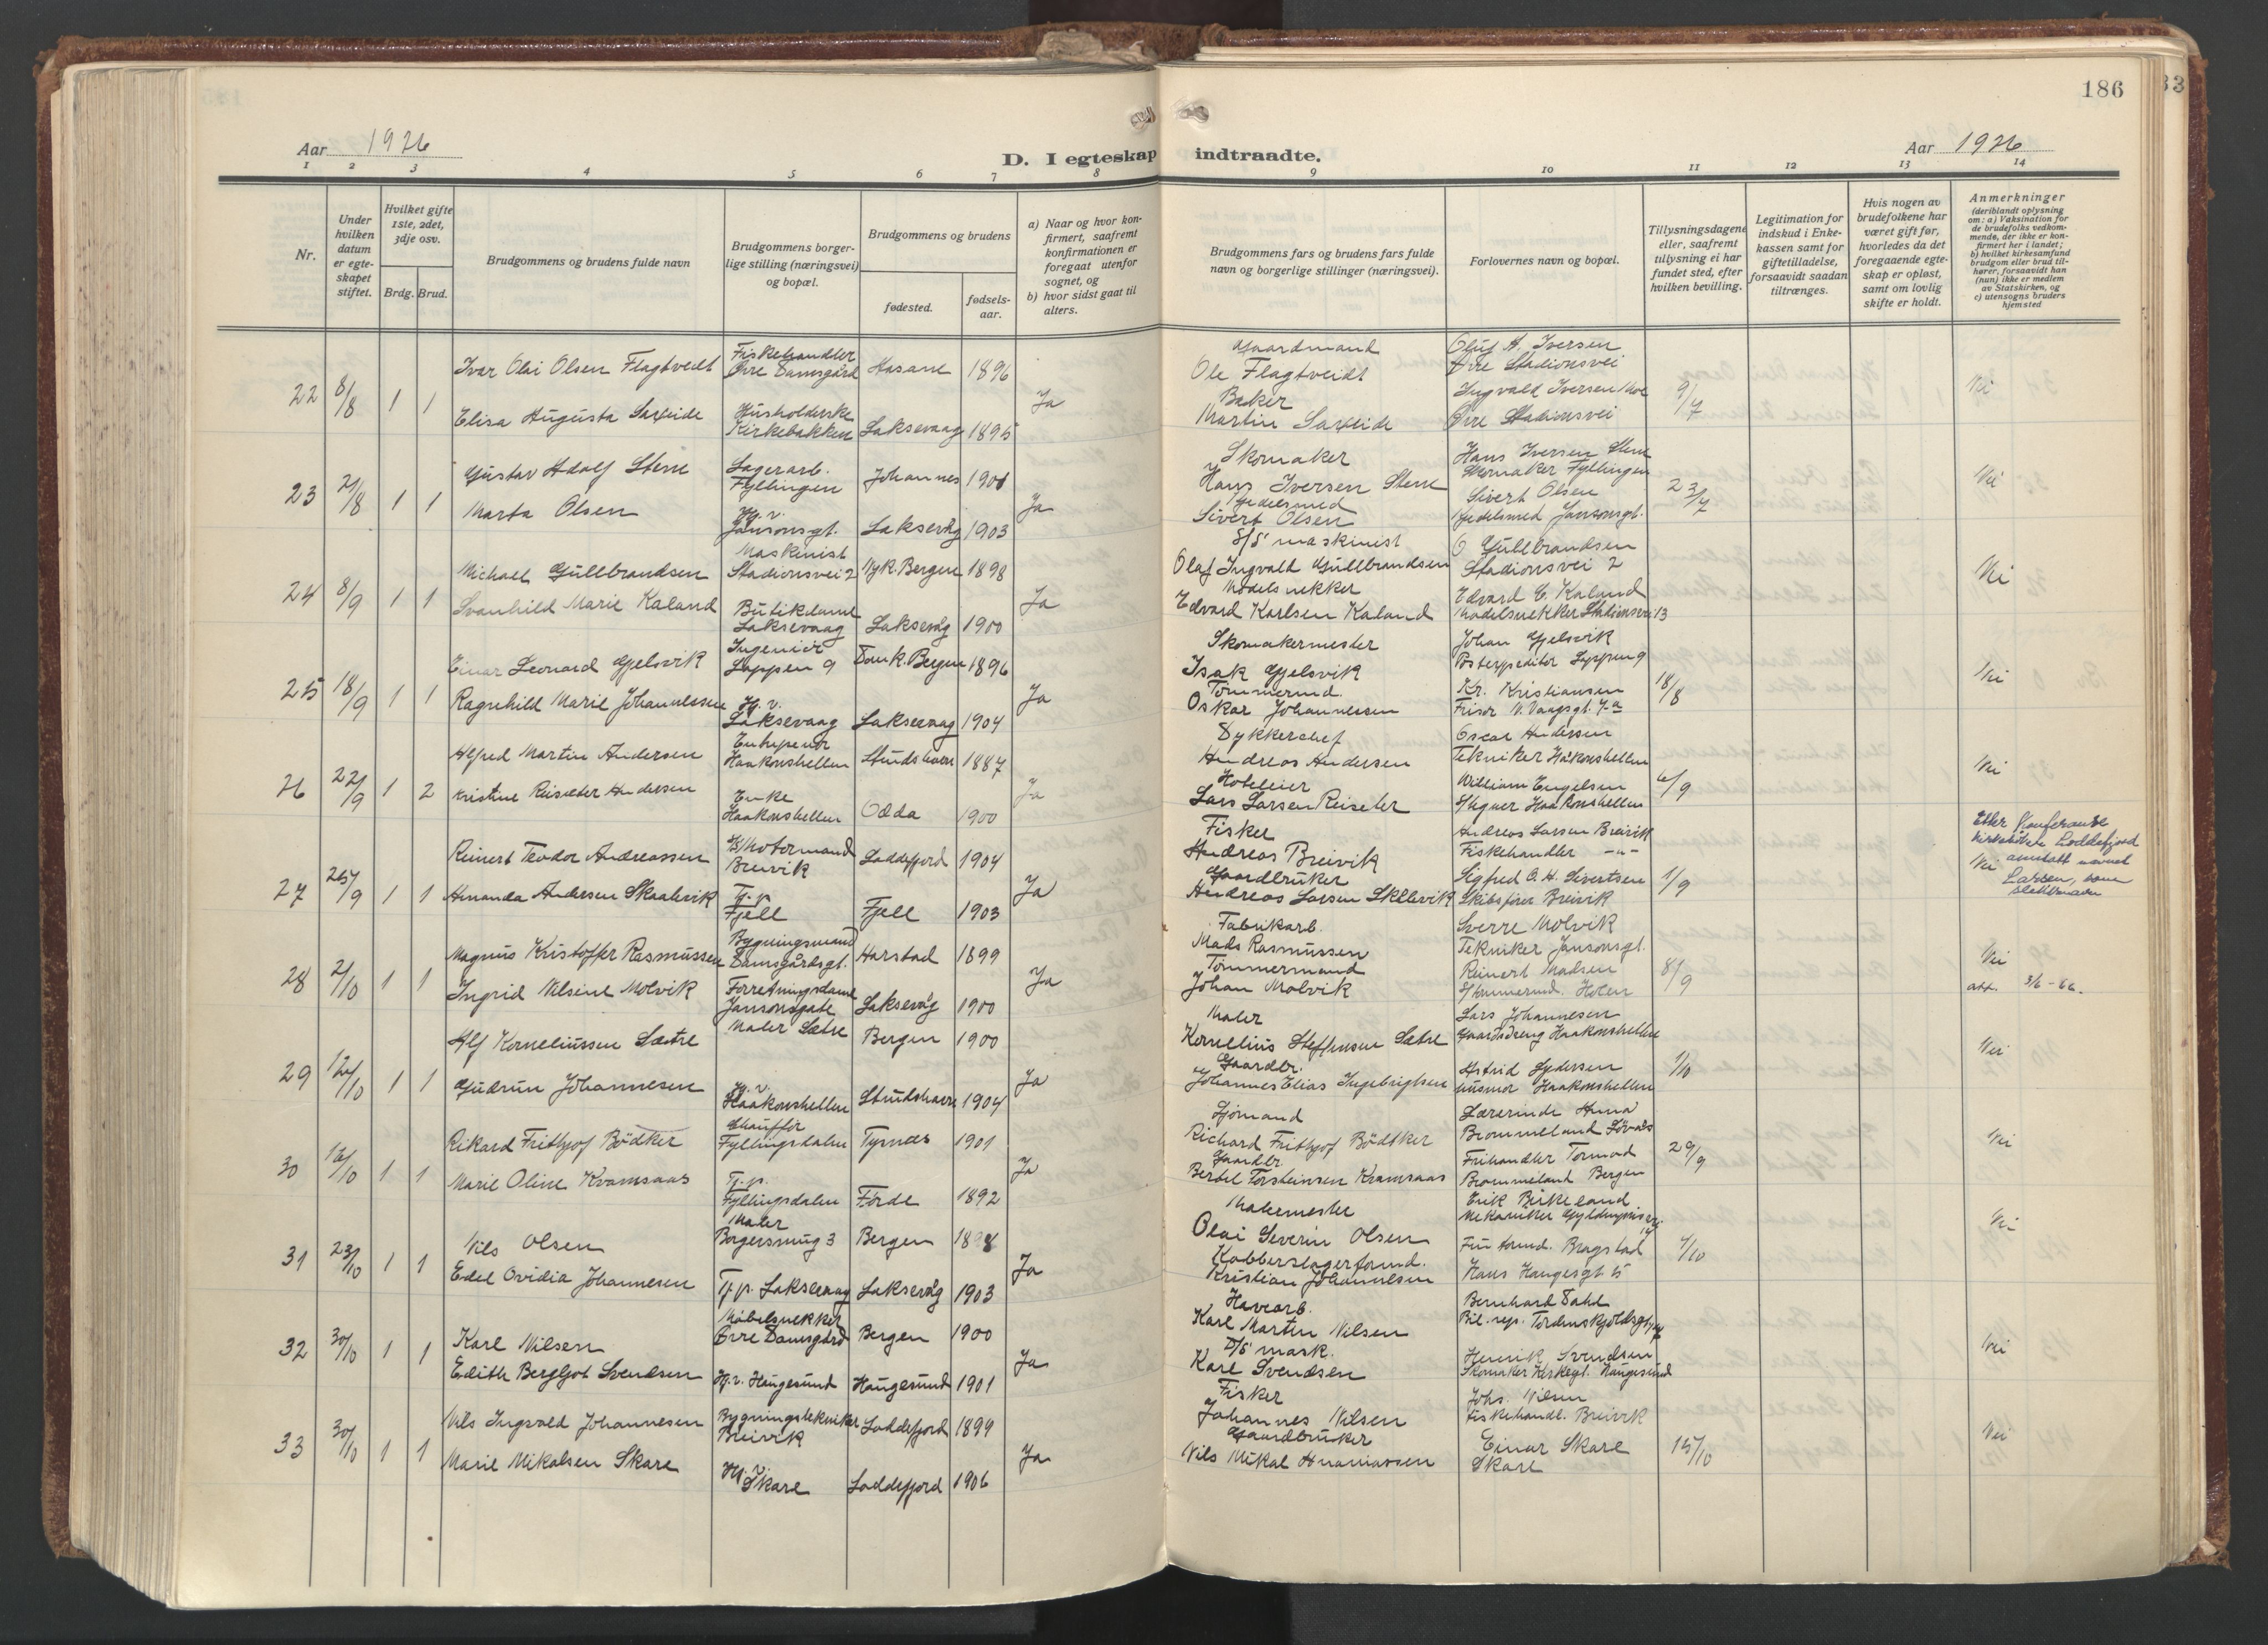 186
33
Aar 1926
D. I egteskap indtraadte.
Aar 1926
1 2 3 4 5 6 7 8 9 10 11 12 13 14
Nr.
Under hvilken datum er egteskapet stiftet.
Hvilket gifte 1ste, 2det, 3dje osv.
Brdg. Brud.
Brudgommens og brudens fulde navn
Brudgommens borgerlige stilling (næringsvei) og bopæl.
Brudgommens og brudens
fødested.
fødselsaar.
a) Naar og hvor konfirmert, saafremt konfirmationen er foregaat utenfor sognet, og
b) hvor sidst gaat til alters.
Brudgommens fars og brudens fars fulde navn og borgerlige stillinger (næringsvei).
Forlovernes navn og bopæl.
Tillysningsdagene eller, saafremt tillysning ei har fundet sted, efter hvilken bevilling.
Legitimation for indskud i Enkekassen samt for giftetilladelse, forsaavidt saadan tiltrænges.
Hvis nogen av brudefolkene har været gift før, hvorledes da det foregaaende egteskap er opløst, samt om lovlig skifte er holdt.
Anmerkninger
(deriblandt oplysning om: a) Vaksination for de brudefolks vedkommende, der ikke er konfirmert her i landet; b) hvilket kirkesamfund brudgom eller brud tilhører, forsaavidt han (hun) ikke er medlem av Statskirken, og c) utensogns bruders hjemsted
22 8/8 1 1
Ivar Olai Olsen Flagtvedt
Fiskehandler
Øvre Damsgård
Hasane 1896
Elisa Augusta Saxeide
Husholderske
Kirkebakken
Laksevaag 1895
Ja
Gaardmand
Ole Flagtveidt
Baker
Martin Saxeide
Oluf A. Iversen
Øvre Stadionsvei
Ingvald Iversen Moe
Øvre Stadionsvei
9/7
Nei
23 21/8 1 1
Gustav Adolf Stene
Lagerarb.
Fyllingen
Johannes 1901
Marta Olsen
Hj. v.
Jansonsgt.
Laksevåg 1903
Ja
Skomaker
Hans Iversen Stene
Sivert Olsen
Hans Iversen Stene
Skomaker Fyllingen
Sivert Olsen
Jansonsgt.
23/7
Nei
24 8/9 1 1
Michael Gullbrandsen
Maskinist
Stadionsvei 2
Nyk. Bergen 1898
Svanhild Marie Kaland
Butikdame
Laksevaag
Laksevåg 1900
Ja
S/S maskinist
Olaf Ingvald Gullbrandsen
Modelsnekker
Edvard Karlsen Kaland
O Gullbrandsen
Stadionsvei 2
Edvard C. Kaland
Modelsnekker Stadionsvei 13
Nei
25 18/9 1 1
Einar Leonard Gjelsvik
Ingeniør
Lappen 9
Domk. Bergen 1896
Ragnhild Marie Johannessen
Hj. v.
Laksevaag
Laksevaag 1904
Ja
Skomakermester
Isak Gjelsvik
Tømmermd.
Oskar Johannessen
Johan Gjelsvik
Postexpeditør Lappen 9
Kr. Kristiansen
Frisør N. Vaagsgt. 7a
18/8
Nei
26 22/9 1 2
Alfred Martin Andersen
Entrepenør
Haakonshellen
Studshavn 1887
Kristine Reisæter Andersen
Enke
Haakonshellen
Odda 1900
Ja
Dykkerchef
Andreas Andersen
Hoteleier
Lars Larsen Reiseter
Oscar Andersen
Tekniker Håkonshellen
William Engelsen
Haakonshellen
6/9
Nei
27 25/9 1 1
Reinert Teodor Andreassen
Motormand
Breivik
Loddefjord 1904
Amanda Andersen Skaalevik
Tj. p.
Fjell
Fjell 1903
Ja
Fisker
Andreas Breivik
Gaardbruker
Andreas Larsen Skålevik
Andreas Larsen Breivik
Fiskehandler -"-
Sigfred O. H. Sivertsen
Skibsfører Breivik
1/9
Nei
Etter Konferanse
kirkebok Loddefjord
anstatt navnet
Larsen, som
slektsnavn
28 2/10 1 1
Magnus Kristoffer Rasmussen
Bygningsmand
Damsgårdsgt.
Harstad 1899
Ingrid Nilsine Molvik
Forretningsdame
Jansonsgate
Laksevåg 1900
Ja
Fabrikarb.
Mads Rasmussen
Tømmermand
Johan Molvik
Sverre Molvik
Tekniker Jansonsgt.
Reinert Madsen
Holen
8/9
Nei
att. 3/6 - 66.
29 12/10 1 1
Alf Korneliussen Sætre
Maler Sætre
Bergen 1900
Gudrun Johannesen
Hj. v.
Haakonshellen
Studshavn 1904
Ja
Maler
Kornelius Steffensen Sætre
Gaardbr.
Johannes Elias Ingebrigtsen
Lars Johannesen
Gaardsdreng Haakonshellen
Astrid Gjdersen
husmor Haakonshellen
1/10
Nei
30 16/10 1 1
Rikard Frithjof Bödtker
Chauffør
Fyllingsdalen
Tysnes 1901
Marie Oline Kvamsaas
Tj. p.
Fyllingsdalen
Førde 1892
Ja
Sjømand
Richard Frithjof Bödtker
Gaardbr.
Bertel Torsteinsen Kvamsaas
Lærerinde Anna
Brommeland Løvaas
Frihandler Tormod
Brommeland Bergen
29/9
Nei
31 23/10 1 1
Nils Olsen
Maler
Borgersmug 3
Bergen 1898
Edel Ovidia Johannesen
Tj. p. Laksevaag
Laksevåg 1903
Ja
Malermester
Olai Severin Olsen
Kobberslagerformd.
Kristian Johannesen
Erik Birkeland
Mekaniker Gyldenprisvei 14
Bragstad
Hans Hangesgt. 15
4/10
Nei
32 30/10 1 1
Karl Nilsen
Møbelsnekker
Øvre Damsgård
Bergen 1900
Edith Bergljot Svendsen
Hj. v. Haugesund
Haugesund 1901
Ja
Havearb.
Karl Martin Nilsen
D/S mask.
Karl Svendsen
Bernhard Dahl
Bil. rep. Tordenskjoldsgt. 7
Henrik Svendsen
Skomaker Kirkegt. Haugesund
Nei
33 30/10 1 1
Nils Ingvald Johannesen
Bygningstekniker
Breivik
Loddefjord 1899
Marie Mikalsen Skare
Hj. v.
Skare
Loddefjord 1906
Ja
Fisker
Johannes Nilsen
Gaardbruker
Nils Mikal Ananiassen
Johs. Nilsen
Fiskehandl. Breivik
Einar Skare
Skare
15/10
Nei